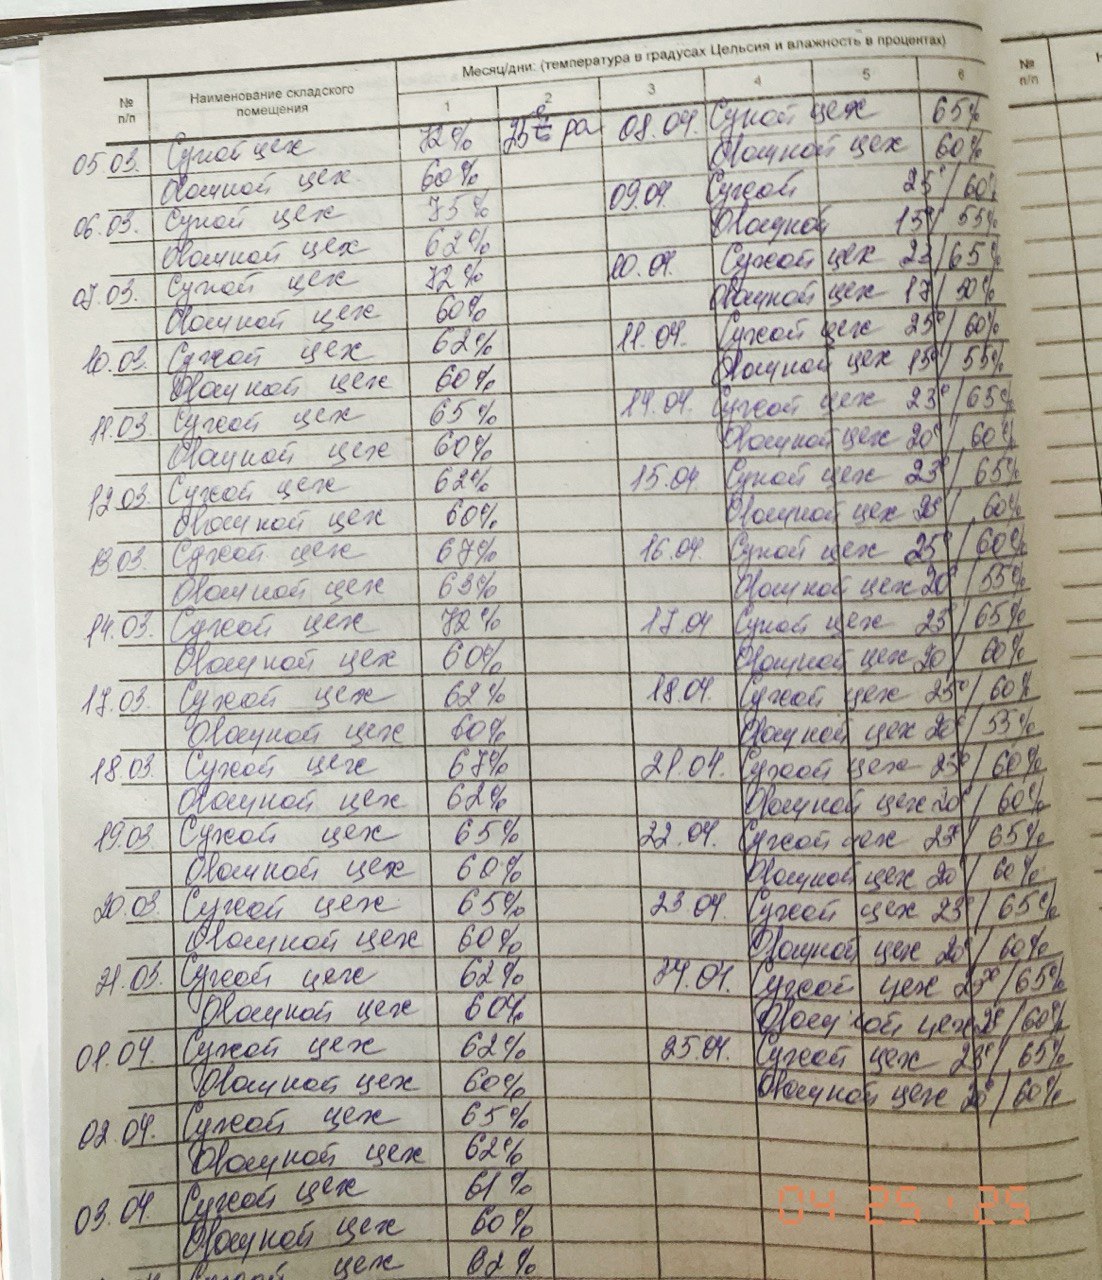 Месяц/дни: (температура в градусах Цельсия и влажность в процентах)
№ п/п
Наименование складского помещения
1 2 3 4 5 6
№ п/п
05.03. Сухой цех 72% 08.04. Сухой цех 65%
Овощной цех 60% Овощной цех 60%
06.03. Сухой цех 75% 09.04 Сухой 25°/60%
Овощной цех 62% Овощной 15°/55%
07.03. Сухой цех 72% 10.04. Сухой цех 23/65%
Овощной цех 60% Овощной цех 17/50%
10.03. Сухой цех 62% 11.04. Сухой цех 25°/60%
Овощной цех 60% Овощной цех 15°/55%
11.03. Сухой цех 65% 14.04. Сухой цех 23°/65%
Овощной цех 60% Овощной цех 20°/60%
12.03. Сухой цех 62% 15.04 Сухой цех 23°/65%
Овощной цех 60% Овощной цех 20°/60%
13.03. Сухой цех 67% 16.04. Сухой цех 25°/60%
Овощной цех 63% Овощной цех 20°/55%
14.03. Сухой цех 72% 17.04 Сухой цех 23°/65%
Овощной цех 60% Овощной цех 20/60%
17.03. Сухой цех 62% 18.04. Сухой цех 25°/60%
Овощной цех 60% Овощной цех 20°/55%
18.03. Сухой цех 67% 21.04. Сухой цех 23°/60%
Овощной цех 62% Овощной цех 20°/60%
19.03. Сухой цех 65% 22.04. Сухой цех 23°/65%
Овощной цех 60% Овощной цех 20°/60%
20.03. Сухой цех 65% 23.04. Сухой цех 23°/65%
Овощной цех 60% Овощной цех 20°/60%
21.03. Сухой цех 62% 24.04. Сухой цех 23°/65%
Овощной цех 60% Овощной цех 20°/60%
01.04. Сухой цех 62% 25.04. Сухой цех 23°/65%
Овощной цех 60% Овощной цех 20°/60%
02.04. Сухой цех 65%
Овощной цех 62%
03.04 Сухой цех 61%
Овощной цех 60%
Сухой цех 62%
04 25 '25